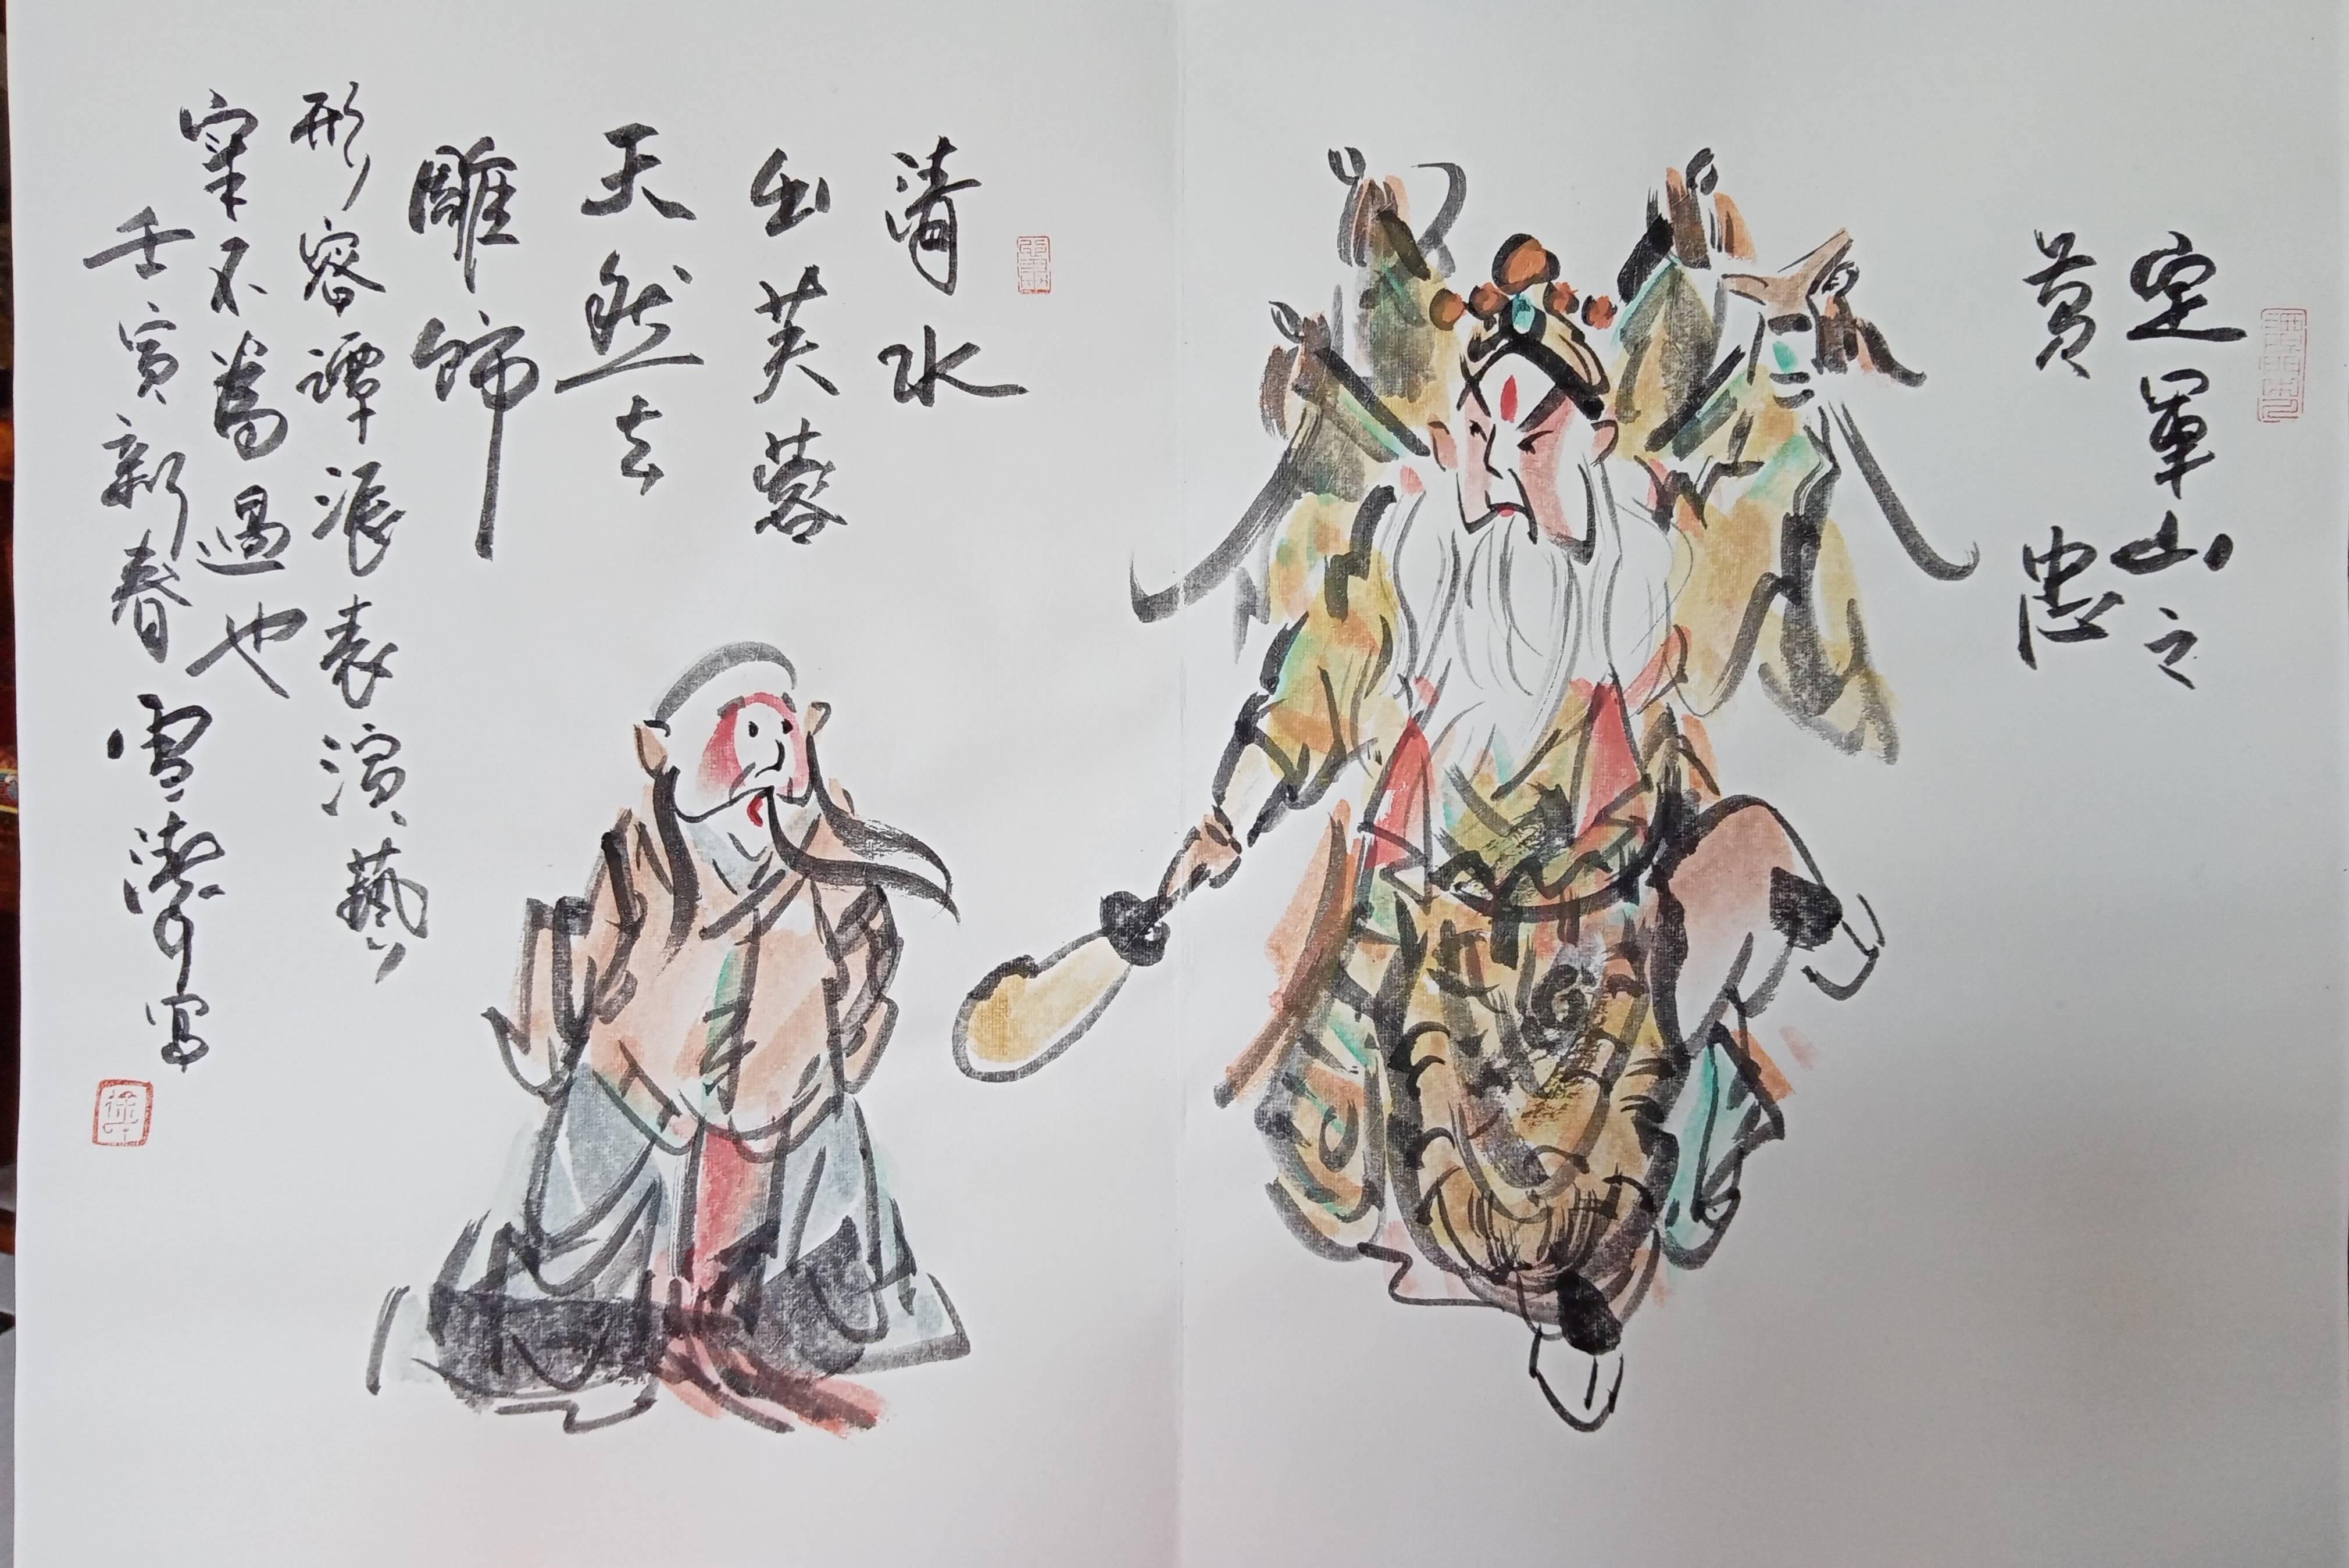 定軍山之
黄忠
清水
出芙蓉
天然去
雕饰
形容譚派表演藝
不為過也
壬寅新春雪 写